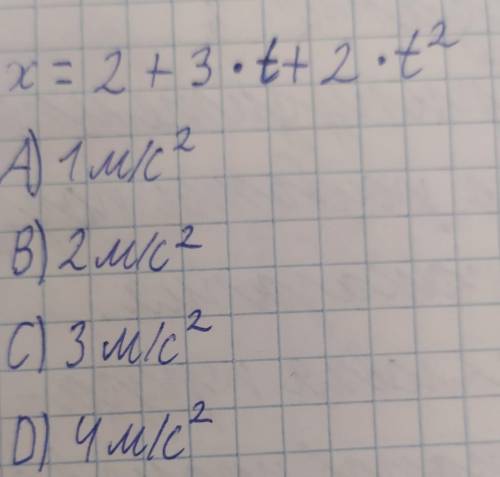 x = 2 + 3 · t + 2 · t²
A) 1 м/с²
B) 2 м/с²
C) 3 м/с²
D) 4 м/с²